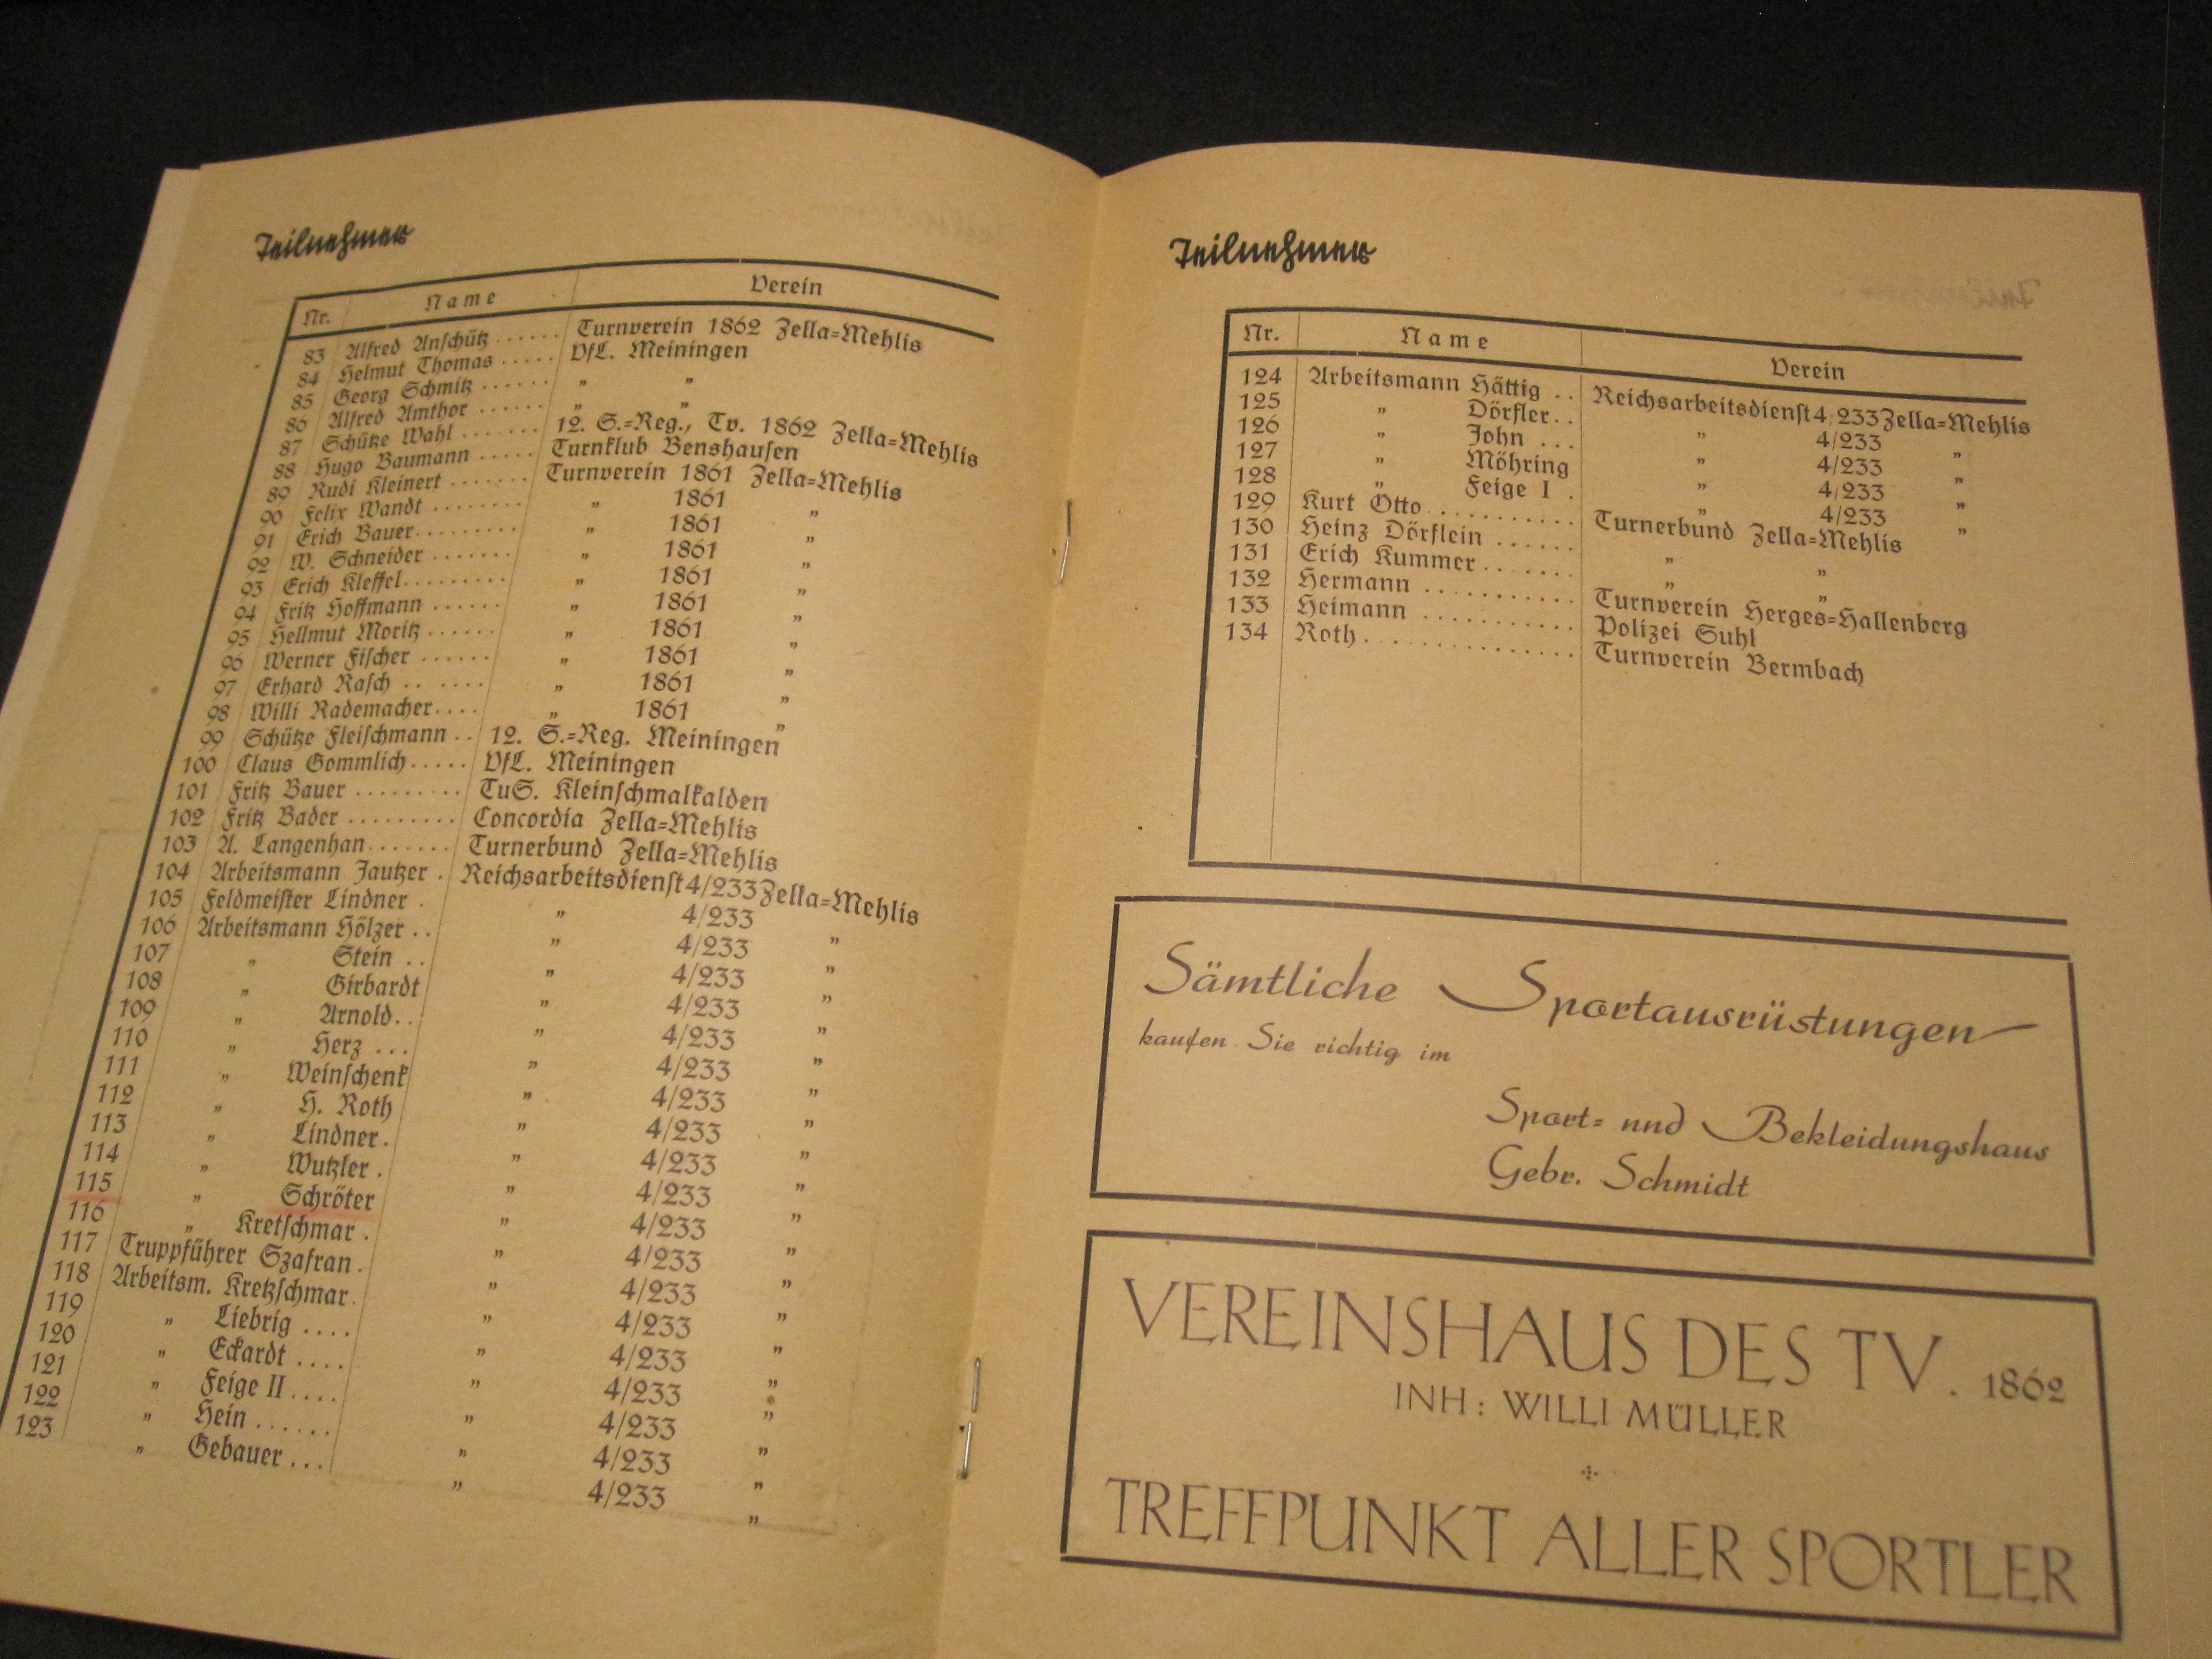 Teilnehmer
Nr. Name Verein
83 Alfred Anschütz ...... Turnverein 1862 Zella-Mehlis
84 Helmut Thomas ..... VfL. Meiningen
85 Georg Schmitz ...... " "
86 Alfred Amthor ...... " "
87 Schütze Wahl ....... 12. S.-Reg., Tv. 1862 Zella-Mehlis
88 Hugo Baumann ..... Turnklub Benshausen
89 Rudi Kleinert ....... Turnverein 1861 Zella-Mehlis
90 Felix Wandt ........ " 1861 "
91 Erich Bauer......... " 1861 "
92 W. Schneider ....... " 1861 "
93 Erich Kleffel......... " 1861 "
94 Fritz Hoffmann ...... " 1861 "
95 Hellmut Moritz ...... " 1861 "
96 Werner Fischer ...... " 1861 "
97 Erhard Rasch .. .... " 1861 "
98 Willi Rademacher.... " 1861 "
99 Schütze Fleischmann .. 12. S.-Reg. Meiningen
100 Claus Gommlich..... VfL. Meiningen
101 Fritz Bauer ......... TuS. Kleinschmalkalden
102 Fritz Bader ......... Concordia Zella-Mehlis
103 A. Langenhan....... Turnerbund Zella-Mehlis
104 Arbeitsmann Jautzer . Reichsarbeitsdienst 4/233 Zella-Mehlis
105 Feldmeister Lindner . " 4/233 "
106 Arbeitsmann Hölzer .. " 4/233 "
107 " Stein .. " 4/233 "
108 " Girbardt " 4/233 "
109 " Arnold.. " 4/233 "
110 " Herz ... " 4/233 "
111 " Weinschenk " 4/233 "
112 " H. Roth " 4/233 "
113 " Lindner. " 4/233 "
114 " Wutzler . " 4/233 "
115 " Schröter " 4/233 "
116 " Kretschmar . " 4/233 "
117 Truppführer Szafran . " 4/233 "
118 Arbeitsm. Kretzschmar. " 4/233 "
119 " Liebrig .... " 4/233 "
120 " Eckardt .... " 4/233 "
121 " Feige II .... " 4/233 "
122 " Hein ...... " 4/233 "
123 " Gebauer ... " 4/233 "
Teilnehmer
Nr. Name Verein
124 Arbeitsmann Hättig .. Reichsarbeitsdienst 4/233 Zella-Mehlis
125 " Dörfler.. " 4/233 "
126 " John ... " 4/233 "
127 " Möhring " 4/233 "
128 " Feige I . " 4/233 "
129 Kurt Otto ........... Turnerbund Zella-Mehlis
130 Heinz Dörflein ...... " "
131 Erich Kummer....... " "
132 Hermann ........... Turnverein Herges-Hallenberg
133 Heimann ........... Polizei Suhl
134 Roth............... Turnverein Bermbach
Sämtliche Sportausrüstungen
kaufen Sie richtig im
Sport- nnd Bekleidungshaus
Gebr. Schmidt
VEREINSHAUS DES TV. 1862
INH: WILLI MÜLLER
TREFFPUNKT ALLER SPORTLER